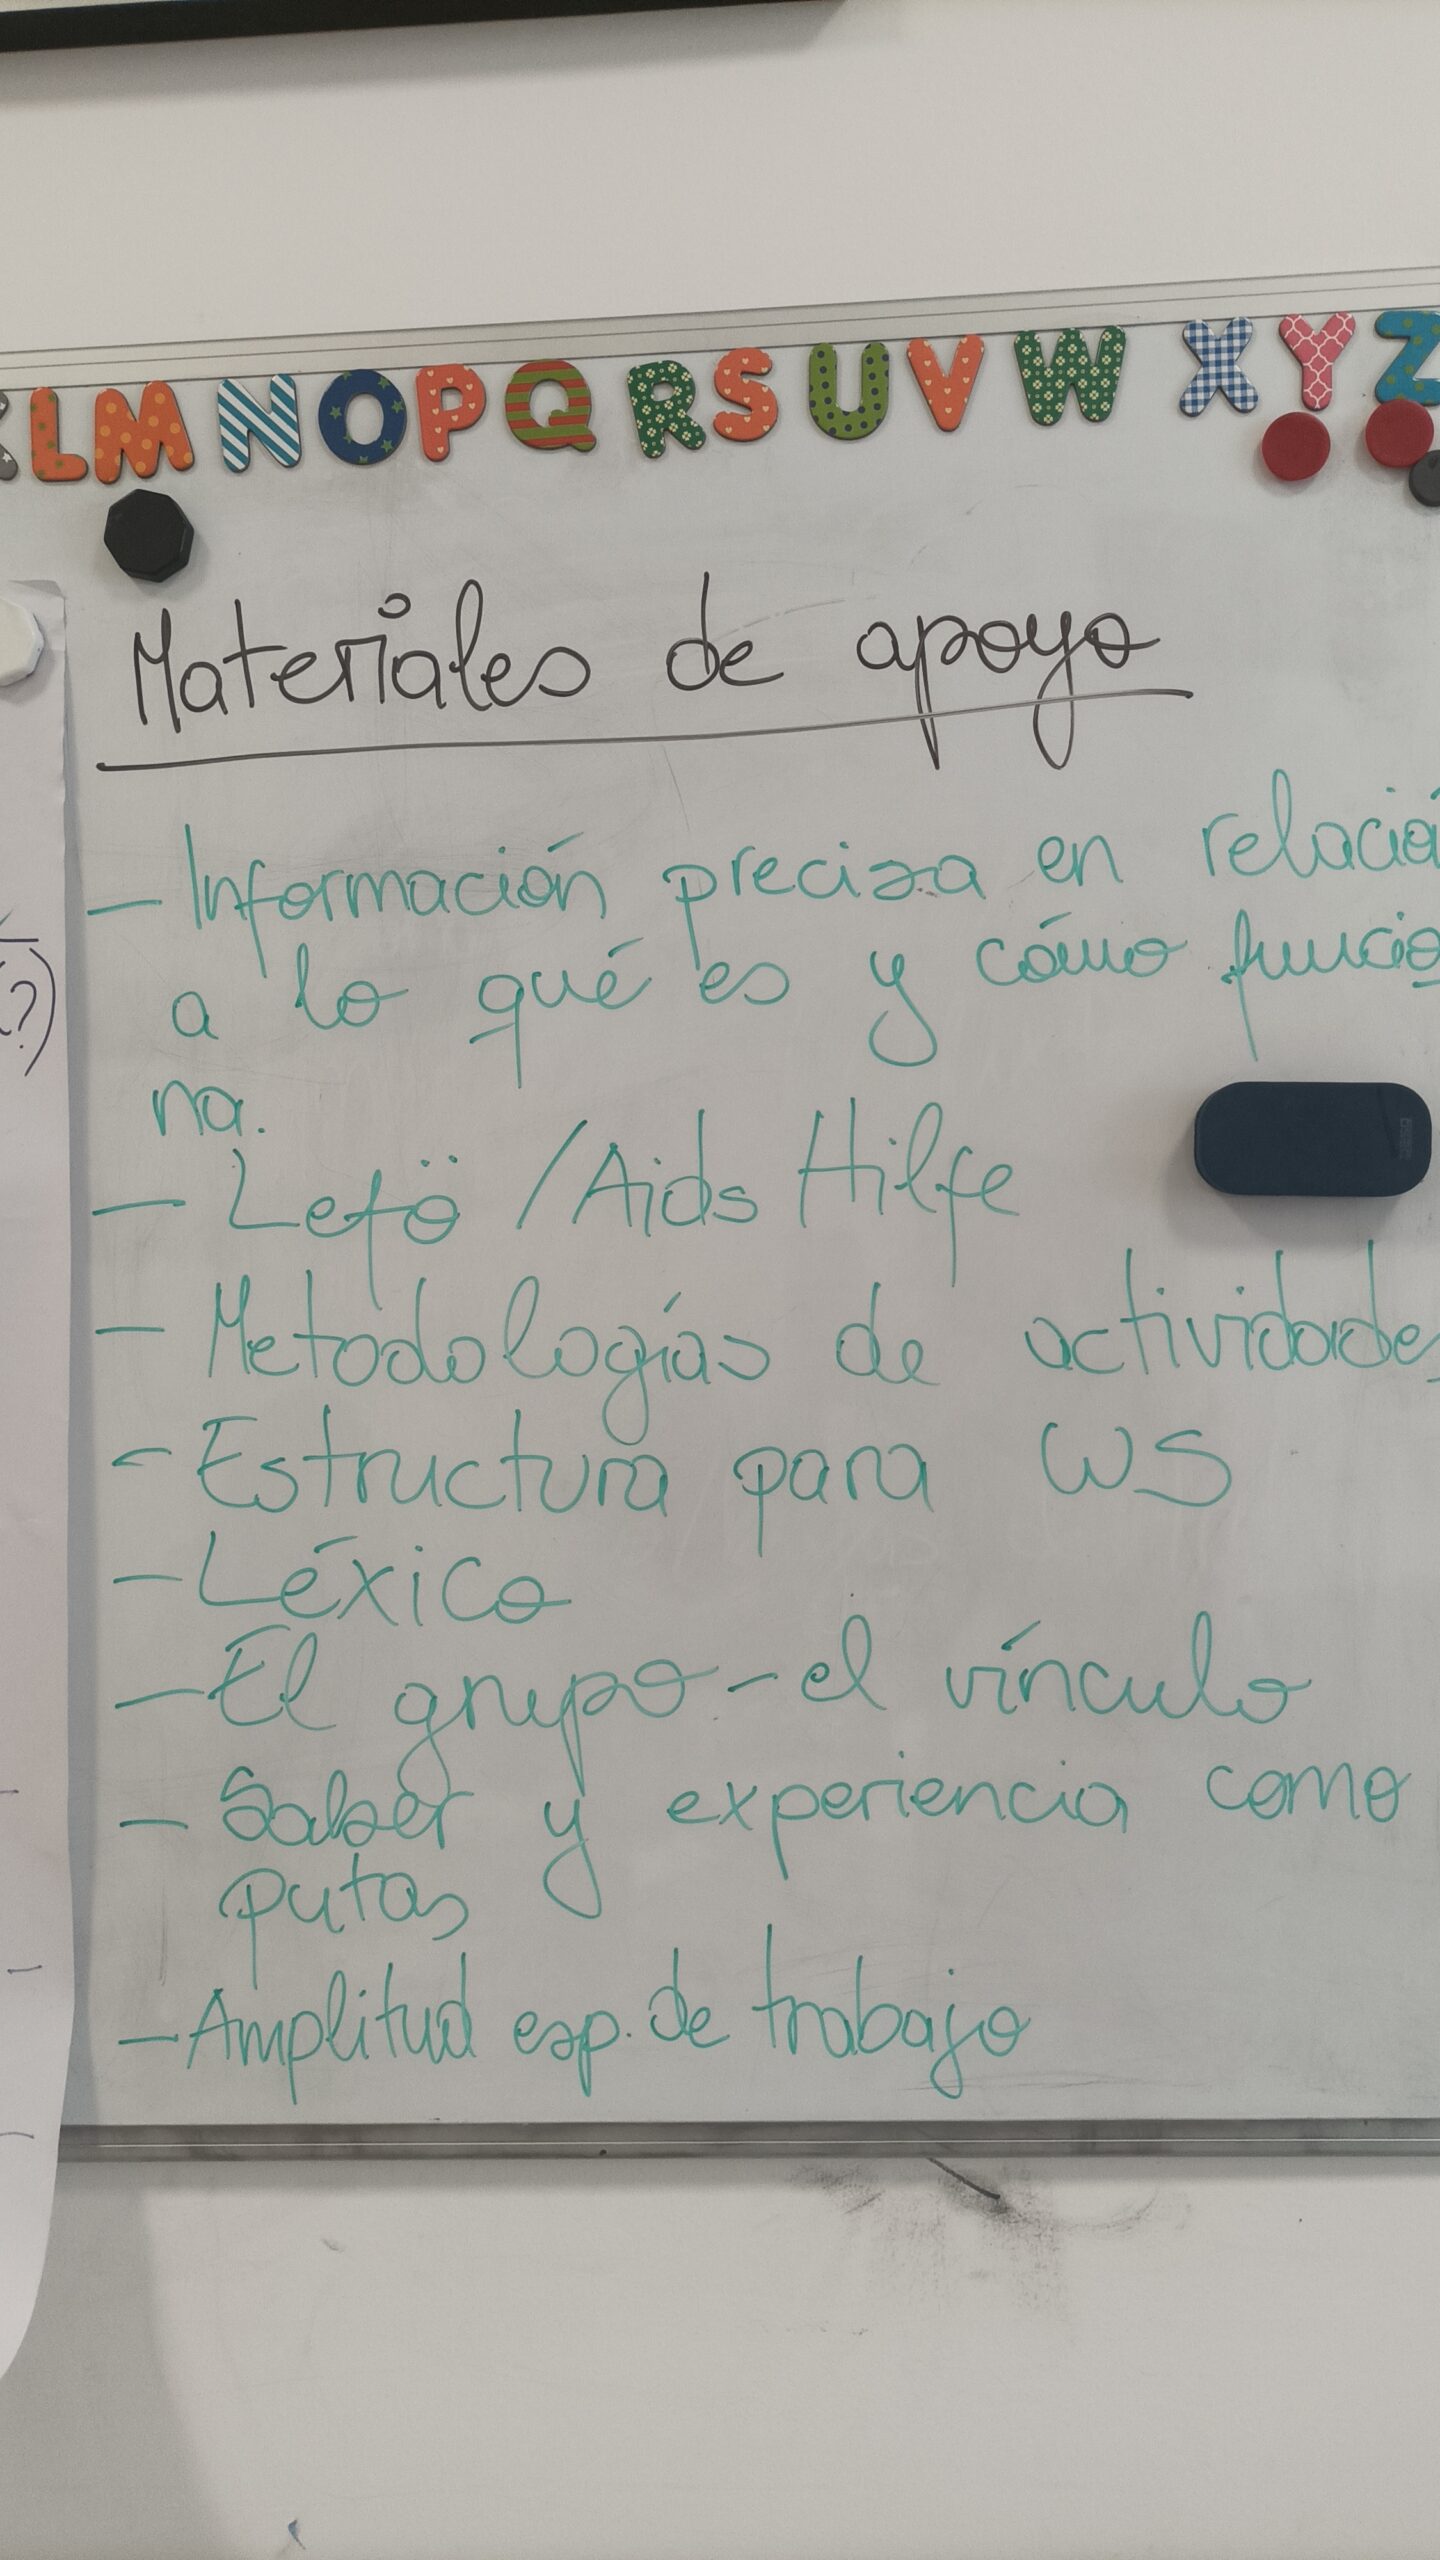 K L M N O P Q R S U V W X Y Z
Materiales de apoyo
- Información precisa en relació
a lo qué es y cómo funcio
na.
- Lefö / Aids Hilfe
- Metodologías de actividades
- Estructura para WS
- Léxico
- El grupo - el vínculo
- Saber y experiencia como
putas
- Amplitud esp. de trabajo
(?)